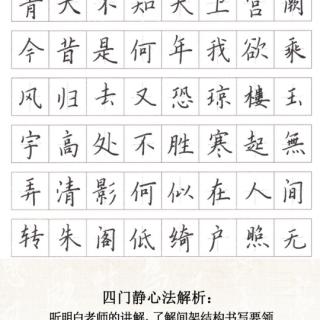 青天不知天上宫阙
今昔是何年我欲乘
风归去又恐琼楼玉
宇高处不胜寒起無
弄清影何似在人间
转朱阁低绮户照无
四门静心法解析：
听明白老师的讲解，了解间架结构书写要领